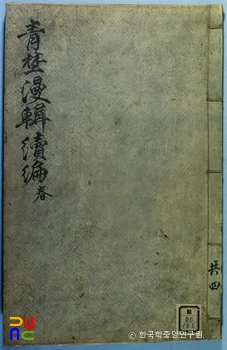 青埜漫輯續編 春
共四
© 한국학중앙연구원